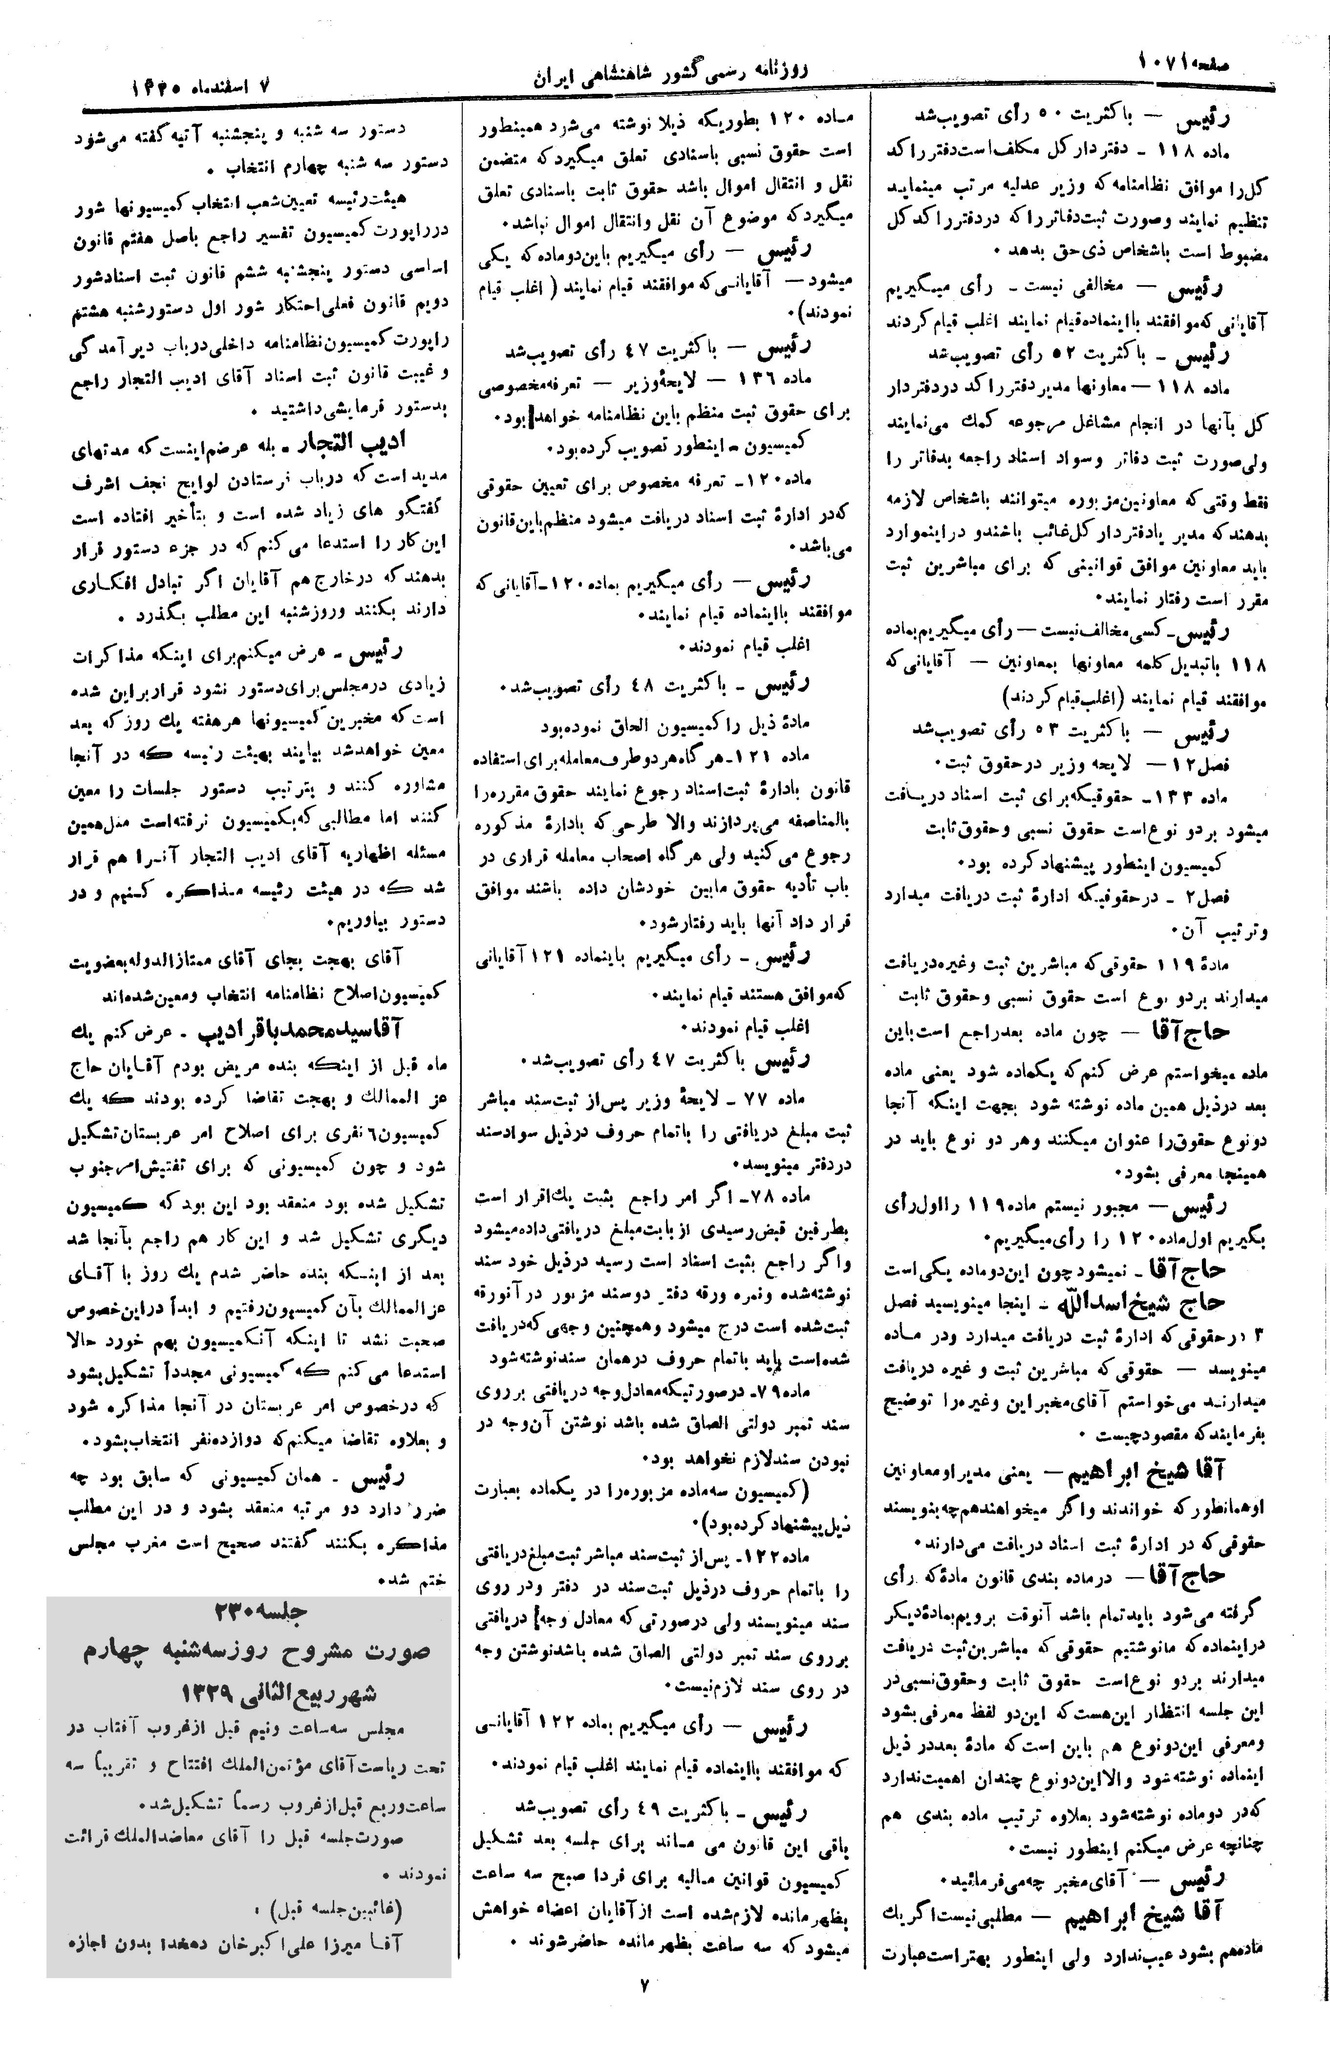 صفحه ۱۰۷۱
روزنامه رسمی کشور شاهنشاهی ایران
۷ اسفندماه ۱۳۲۵
رئیس — باکثریت ۵۰ رأی تصویب شد
ماده ۱۱۸ ـ دفتر دار کل مکلف است دفتر راکد
کل را موافق نظامنامه که وزیر عدلیه مرتب مینماید
تنظیم نمایند وصورت ثبت دفاتر را که در دفتر راکد کل
مضبوط است باشخاص ذی حق بدهد .
رئیس — مخالفی نیست ـ رأی میگیریم
آقایانی که موافقند بااینماده قیام نمایند اغلب قیام کردند
رئیس ـ باکثریت ۵۲ رأی تصویب شد
ماده ۱۱۸ — معاونها مدیر دفتر راکد در دفتر دار
کل بآنها در انجام مشاغل مرجوعه کمك می نمایند
ولی صورت ثبت دفاتر وسواد اسناد راجعه بدفاتر را
فقط وقتی که معاونین مزبوره میتوانند باشخاص لازمه
بدهند که مدیر یا دفتر دار کل غائب باشند و در اینموارد
باید معاونین موافق قوانینی که برای مباشرین ثبت
مقرر است رفتار نمایند.
رئیس ـ کسی مخالف نیست — رأی میگیریم بماده
۱۱۸ باتبدیل کلمه معاونها بمعاونین — آقایانی که
موافقند قیام نمایند (اغلب قیام کردند)
رئیس — باکثریت ۵۳ رأی تصویب شد
فصل ۱۲ — لایحه وزیر در حقوق ثبت.
ماده ۱۳۳ ـ حقوقیکه برای ثبت اسناد دریافت
میشود بر دو نوع است حقوق نسبی وحقوق ثابت
کمیسیون اینطور پیشنهاد کرده بود.
فصل ۲ ـ در حقوقیکه ادارهٔ ثبت دریافت میدارد
وترتیب آن.
مادهٔ ۱۱۹ حقوقی که مباشرین ثبت وغیره دریافت
میدارند بر دو نوع است حقوق نسبی وحقوق ثابت
حاج آقا — چون ماده بعد راجع است باین
ماده میخواستم عرض کنم که یکماده شود یعنی ماده
بعد در ذیل همین ماده نوشته شود بجهت اینکه آنجا
دو نوع حقوق را عنوان میکنند وهر دو نوع باید در
همینجا معرفی بشود.
رئیس — مجبور نیستم ماده ۱۱۹ را اول رأی
بگیریم اول ماده ۱۲۰ را رأی میگیریم.
حاج آقا ـ نمیشود چون این دو ماده یکی است
حاج شیخ اسدالله ـ اینجا مینویسید فصل
۳ در حقوقی که ادارهٔ ثبت دریافت میدارد ودر ماده
مینویسد — حقوقی که مباشرین ثبت و غیره دریافت
میدارند می خواستم آقای مخبر این وغیره را توضیح
بفرمایند که مقصود چیست .
آقا شیخ ابراهیم — یعنی مدیر او معاونین
او همانطور که خواندند واگر میخواهند هم چه بنویسند
حقوقی که در ادارهٔ ثبت اسناد دریافت می دارند.
حاج آقا — در ماده بندی قانون مادهٔ که رأی
گرفته می شود باید تمام باشد آنوقت برویم بمادهٔ دیگر
در اینماده که مانوشتیم حقوقی که مباشرین ثبت دریافت
میدارند بر دو نوع است حقوق ثابت وحقوق نسبی در
این جلسه انتظار این هست که این دو لفظ معرفی بشود
ومعرفی این دو نوع هم باین است که مادهٔ بعد در ذیل
اینماده نوشته شود والا این دو نوع چندان اهمیت ندارد
که در دو ماده نوشته شود بعلاوه ترتیب ماده بندی هم
چنانچه عرض میکنم اینطور نیست.
رئیس — آقای مخبر چه می فرمائید.
آقا شیخ ابراهیم — مطلبی نیست اگر یك
ماده هم بشود عیب ندارد ولی اینطور بهتر است عبارت
ماده ۱۲۰ بطوریکه ذیلا نوشته می شود همینطور
است حقوق نسبی باسنادی تعلق میگیرد که متضمن
نقل و انتقال اموال باشد حقوق ثابت باسنادی تعلق
میگیرد که موضوع آن نقل وانتقال اموال نباشد.
رئیس — رأی میگیریم باین دو ماده که یکی
میشود — آقایانی که موافقند قیام نمایند ( اغلب قیام
نمودند).
رئیس — باکثریت ۴۷ رأی تصویب شد
ماده ۱۳۶ — لایحهٔ وزیر — تعرفه مخصوصی
برای حقوق ثبت منظم باین نظامنامه خواهد بود.
کمیسیون ـ اینطور تصویب کرده بود.
ماده ۱۲۰ ـ تعرفه مخصوص برای تعیین حقوقی
که در ادارهٔ ثبت اسناد دریافت میشود منظم باین قانون
می باشد.
رئیس — رأی میگیریم بماده ۱۲۰ ـ آقایانی که
موافقند بااینماده قیام نمایند.
اغلب قیام نمودند.
رئیس ـ باکثریت ۴۸ رأی تصویب شد.
مادهٔ ذیل را کمیسیون الحاق نموده بود
ماده ۱۲۱ ـ هر گاه هر دو طرف معامله برای استفاده
قانون بادارهٔ ثبت اسناد رجوع نمایند حقوق مقرره را
بالمناصفه می پردازند والا طرحی که بادارهٔ مذکوره
رجوع می کنید ولی هر گاه اصحاب معامله قراری در
باب تأدیه حقوق مابین خودشان داده باشند موافق
قرار داد آنها باید رفتار شود.
رئیس — رأی میگیریم باینماده ۱۲۱ آقایانی
که موافق هستند قیام نمایند.
اغلب قیام نمودند.
رئیس باکثریت ۴۷ رأی تصویب شد.
ماده ۷۷ ـ لایحهٔ وزیر پس از ثبت سند مباشر
ثبت مبلغ دریافتی را باتمام حروف در ذیل سواد سند
در دفتر مینویسد.
ماده ۷۸ ـ اگر امر راجع بثبت یك اقرار است
بطرفین قبض رسیدی از بابت مبلغ دریافتی داده میشود
واگر راجع بثبت اسناد است رسید در ذیل خود سند
نوشته شده ونمره ورقه دفتر دو سند مزبور در آنورقه
ثبت شده است درج میشود وهمچنین وجهی که دریافت
شده است باید باتمام حروف در همان سند نوشته شود
ماده ۷۹ ـ در صورتیکه معادل وجه دریافتی بر روی
سند تمبر دولتی الصاق شده باشد نوشتن آن وجه در
نبودن سند لازم نخواهد بود.
(کمیسیون سه ماده مزبوره را در یکماده بعبارت
ذیل پیشنهاد کرده بود).
ماده ۱۲۲ ـ پس از ثبت سند مباشر ثبت مبلغ دریافتی
را باتمام حروف در ذیل ثبت سند در دفتر ودر روی
سند مینویسند ولی در صورتی که معادل وجه دریافتی
بر روی سند تمبر دولتی الصاق شده باشد نوشتن وجه
در روی سند لازم نیست.
رئیس — رأی میگیریم بماده ۱۲۲ آقایانی
که موافقند بااینماده قیام نمایند اغلب قیام نمودند.
رئیس ـ باکثریت ۴۹ رأی تصویب شد
باقی این قانون می ماند برای جلسه بعد تشکیل
کمیسیون قوانین مالیه برای فردا صبح سه ساعت
بظهر مانده لازم شده است از آقایان اعضاء خواهش
میشود که سه ساعت بظهر مانده حاضر شوند .
دستور سه شنبه و پنجشنبه آتیه گفته می شود
دستور سه شنبه چهارم انتخاب .
هیئت رئیسه تعیین شعب انتخاب کمیسیونها شور
در راپورت کمیسیون تفسیر راجع باصل هفتم قانون
اساسی دستور پنجشنبه ششم قانون ثبت اسناد شور
دویم قانون فعلی احتکار شور اول دستور شنبه هشتم
راپورت کمیسیون نظامنامه داخلی در باب دیر آمدگی
و غیبت قانون ثبت اسناد آقای ادیب التجار راجع
بدستور فرمایشی داشتید .
ادیب التجار ـ بله عرضم اینست که مدتهای
مدید است که در باب فرستادن لوایح نجف اشرف
گفتگو های زیاد شده است و بتأخیر افتاده است
این کار را استدعا می کنم که در جزء دستور قرار
بدهند که در خارج هم آقایان اگر تبادل افکاری
دارند بکنند وروز شنبه این مطلب بگذرد .
رئیس ـ عرض میکنم برای اینکه مذاکرات
زیادی در مجلس برای دستور نشود قرار بر این شده
است که مخبرین کمیسیونها هر هفته یك روز که بعد
معین خواهد شد بیایند بهیئت رئیسه که در آنجا
مشاوره کنند و بترتیب دستور جلسات را معین
کنند اما مطالبی که بکمیسیون نرفته است مثل همین
مسئله اظهاریه آقای ادیب التجار آنرا هم قرار
شد که در هیئت رئیسه مذاکره کنیم و در
دستور بیاوریم.
آقای بهجت بجای آقای ممتاز الدوله بعضویت
کمیسیون اصلاح نظامنامه انتخاب ومعین شده اند
آقا سید محمد باقر ادیب ـ عرض کنم یك
ماه قبل از اینکه بنده مریض بودم آقایان حاج
عز الممالك و بهجت تقاضا کرده بودند که یك
کمیسیون ٦ نفری برای اصلاح امر عربستان تشکیل
شود و چون کمیسیونی که برای تفتیش امر جنوب
تشکیل شده بود منعقد بود این بود که کمیسیون
دیگری تشکیل شد و این کار هم راجع بآنجا شد
بعد از اینکه بنده حاضر شدم یك روز با آقای
عز الممالك بآن کمیسیون رفتیم و ابداً در این خصوص
صحبت نشد تا اینکه آنکمیسیون بهم خورد حالا
استدعا می کنم که کمیسیونی مجدداً تشکیل بشود
که در خصوص امر عربستان در آنجا مذاکره شود
و بعلاوه تقاضا میکنم که دوازده نفر انتخاب بشود.
رئیس ـ همان کمیسیونی که سابق بود چه
ضرر دارد دو مرتبه منعقد بشود و در این مطلب
مذاکره بکنند گفتند صحیح است مغرب مجلس
ختم شد.
جلسه ۲۳۰
صورت مشروح روز سه شنبه چهارم
شهر ربیع الثانی ۱۳۲۹
مجلس سه ساعت ونیم قبل از غروب آفتاب در
تحت ریاست آقای مؤتمن الملك افتتاح و تقریباً سه
ساعت وربع قبل از غروب رسماً تشکیل شد.
صورت جلسه قبل را آقای معاضد الملك قرائت
نمودند .
(غائبین جلسه قبل) .
آقا میرزا علی اکبر خان دهخدا بدون اجازه
۷